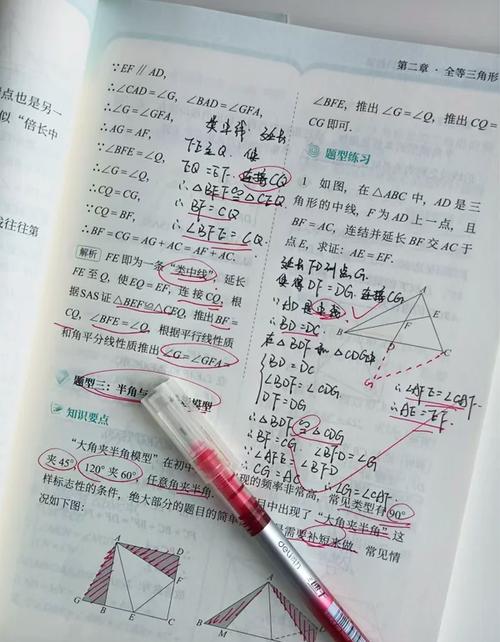 点也是另一
似“倍长中
往往第
∵EF∥AD,
∴∠CAD=∠G,∠BAD=∠GFA,
∴∠G=∠GFA,
∴AG=AF,
∵∠BFE=∠Q,
∴∠G=∠Q,
∴CQ=CG,
∵CQ=BF,
∴BF=CG=AG+AC=AF+AC.
类中线 延长
FE至Q 使
EQ=EF. 连接CQ
∴△BFE≌△CEQ
∴BF=CQ
∴∠BFE=∠Q.
解析 FE即为一条“类中线”,延长
FE至Q,使EQ=EF,连接CQ,根
据SAS证△BEF≌△CEQ,推出BF=
CQ,∠BFE=∠Q,根据平行线性质
和角平分线性质推出∠G=∠GFA=
题型三:半角与模型
知识要点
“大角夹半角模型”在初中现的频率非常高,常见类型有90°
夹45°,120°夹60°,任意角夹半角.目中出现了“大角夹半角”这
样标志性的条件,绝大部分的题目的简单是需要补短来做.常见情
况如下图:
A
D
F
G
B
E
C
A
B
M
第二章·全等三角形
∠BFE,推出∠G=∠Q,推出CQ=
CG即可.
题型练习
1 如图,在△ABC中,AD是三
角形的中线,F为AD上一点,且
BF=AC,连结并延长BF交AC于
点E,求证:AE=EF.
延长FD到点G.
使得DF=DG.连接CG
∵AD是中线
∴BD=DC
在△BDF和△CDG中
BD=DC
∠BDF=∠CDG
DF=DG
∴△BDF≌△CDG
∴BF=CG ∠BFD=∠G
∵∠AFE=∠BFD
CG=AC ∴∠G=∠CAF.
∴∠AFE=∠CAF
∴AE=EF.
A
E
F
B
D
C
G
deli